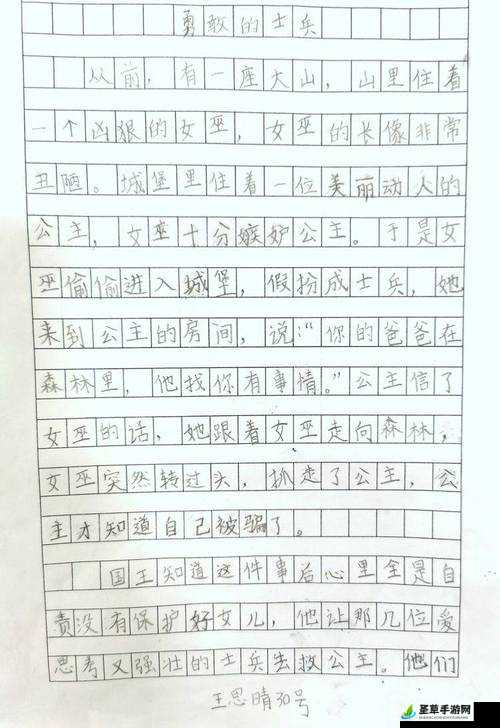 勇敢的士兵
从前，有一座大山，山里住着
一个凶狠的女巫，女巫的长像非常
丑陋。城堡里住着一位美丽动人的
公主，女巫十分嫉妒公主。于是女
巫偷偷进入城堡，假扮成士兵，她
来到公主的房间，说：“你的爸爸在
森林里，他找你有事情。”公主信了
女巫的话，她跟着女巫走向森林，
女巫突然转过头，抓走了公主，公
主才知道自己被骗了。
国王知道这件事后心里全是自
责没有保护好女儿，他让那几位爱
思考又强壮的士兵去救公主。他们
王思晴30号
星草手游网